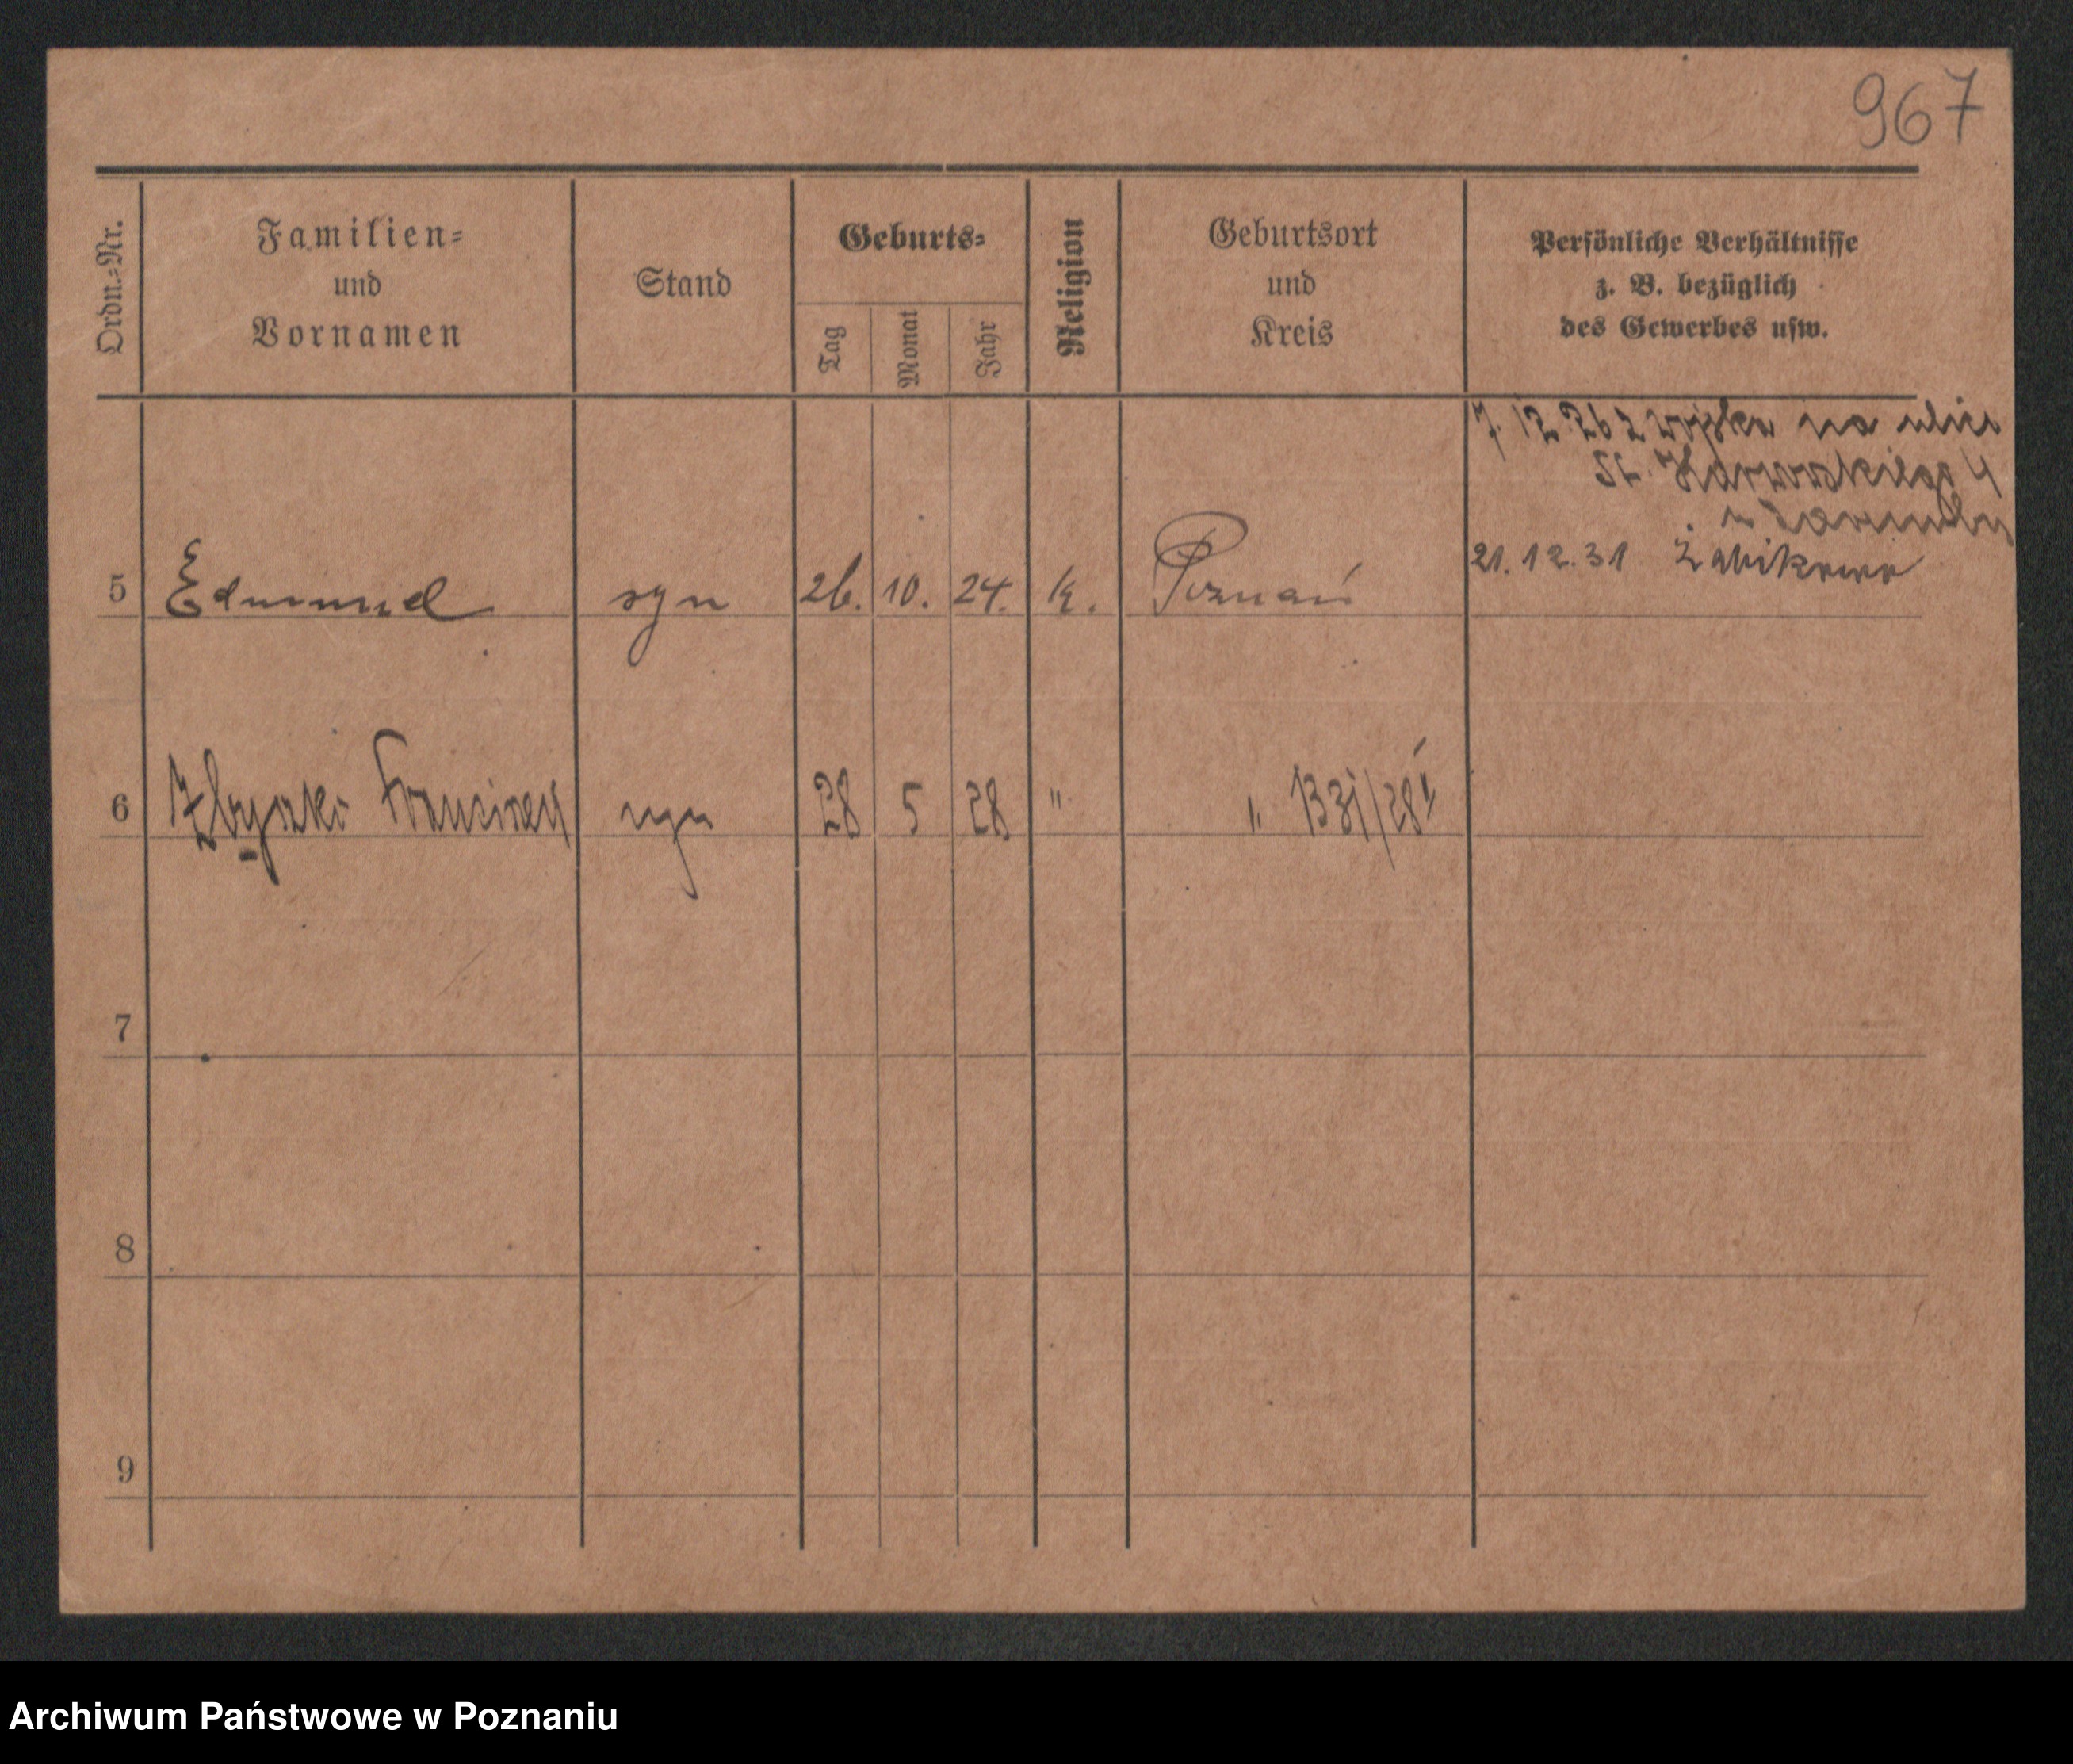 967
Ordn.=Nr.
Familien=
und
Vornamen
Stand
Geburts=
Tag
Monat
Jahr
Religion
Geburtsort
und
Kreis
Persönliche Verhältnisse
z. B. bezüglich
des Gewerbes usw.
7. 12 26 z wojska na ulice
St. 4
21.12.31 Żabikowo
5 Edmund syn 26. 10. 24. k. Poznań
6 Zbyszko Franciszek syn 28 5 28 " "
7
8
9
Archiwum Państwowe w Poznaniu